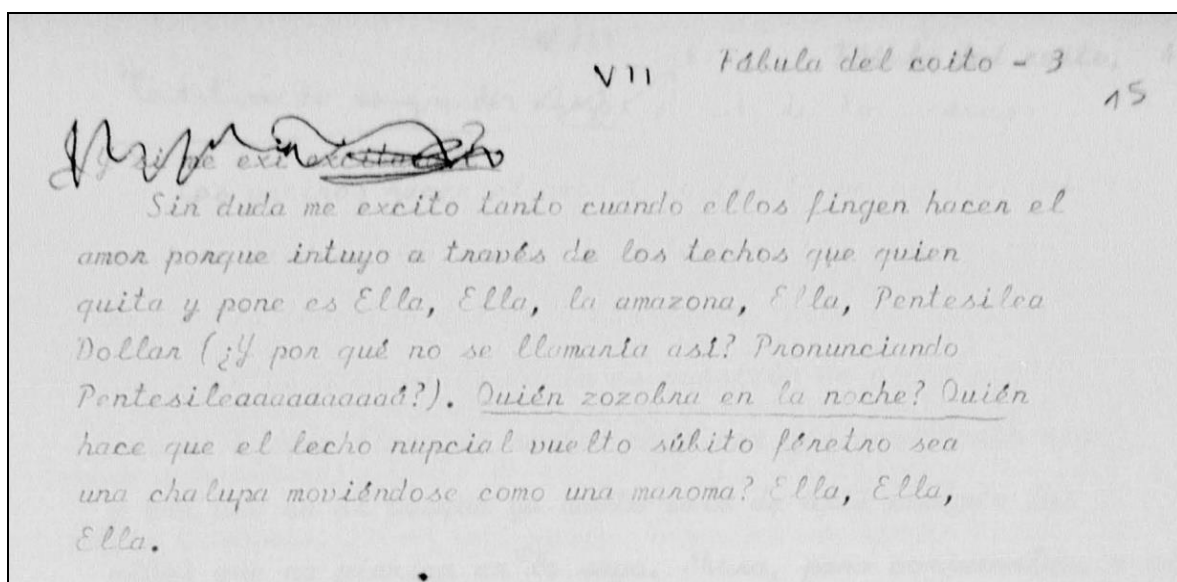 VII Fábula del coito - 3
15
si me exi
Sin duda me excito tanto cuando ellos fingen hacer el
amor porque intuyo a través de los techos que quien
quita y pone es Ella, Ella, la amazona, Ella, Pentesilea
Dollar (¿Y por qué no se llamaría así? Pronunciando
Pentesileaaaaaaaaaá?). Quién zozobra en la noche? Quién
hace que el lecho nupcial vuelto súbito féretro sea
una chalupa moviéndose como una maroma? Ella, Ella,
Ella.